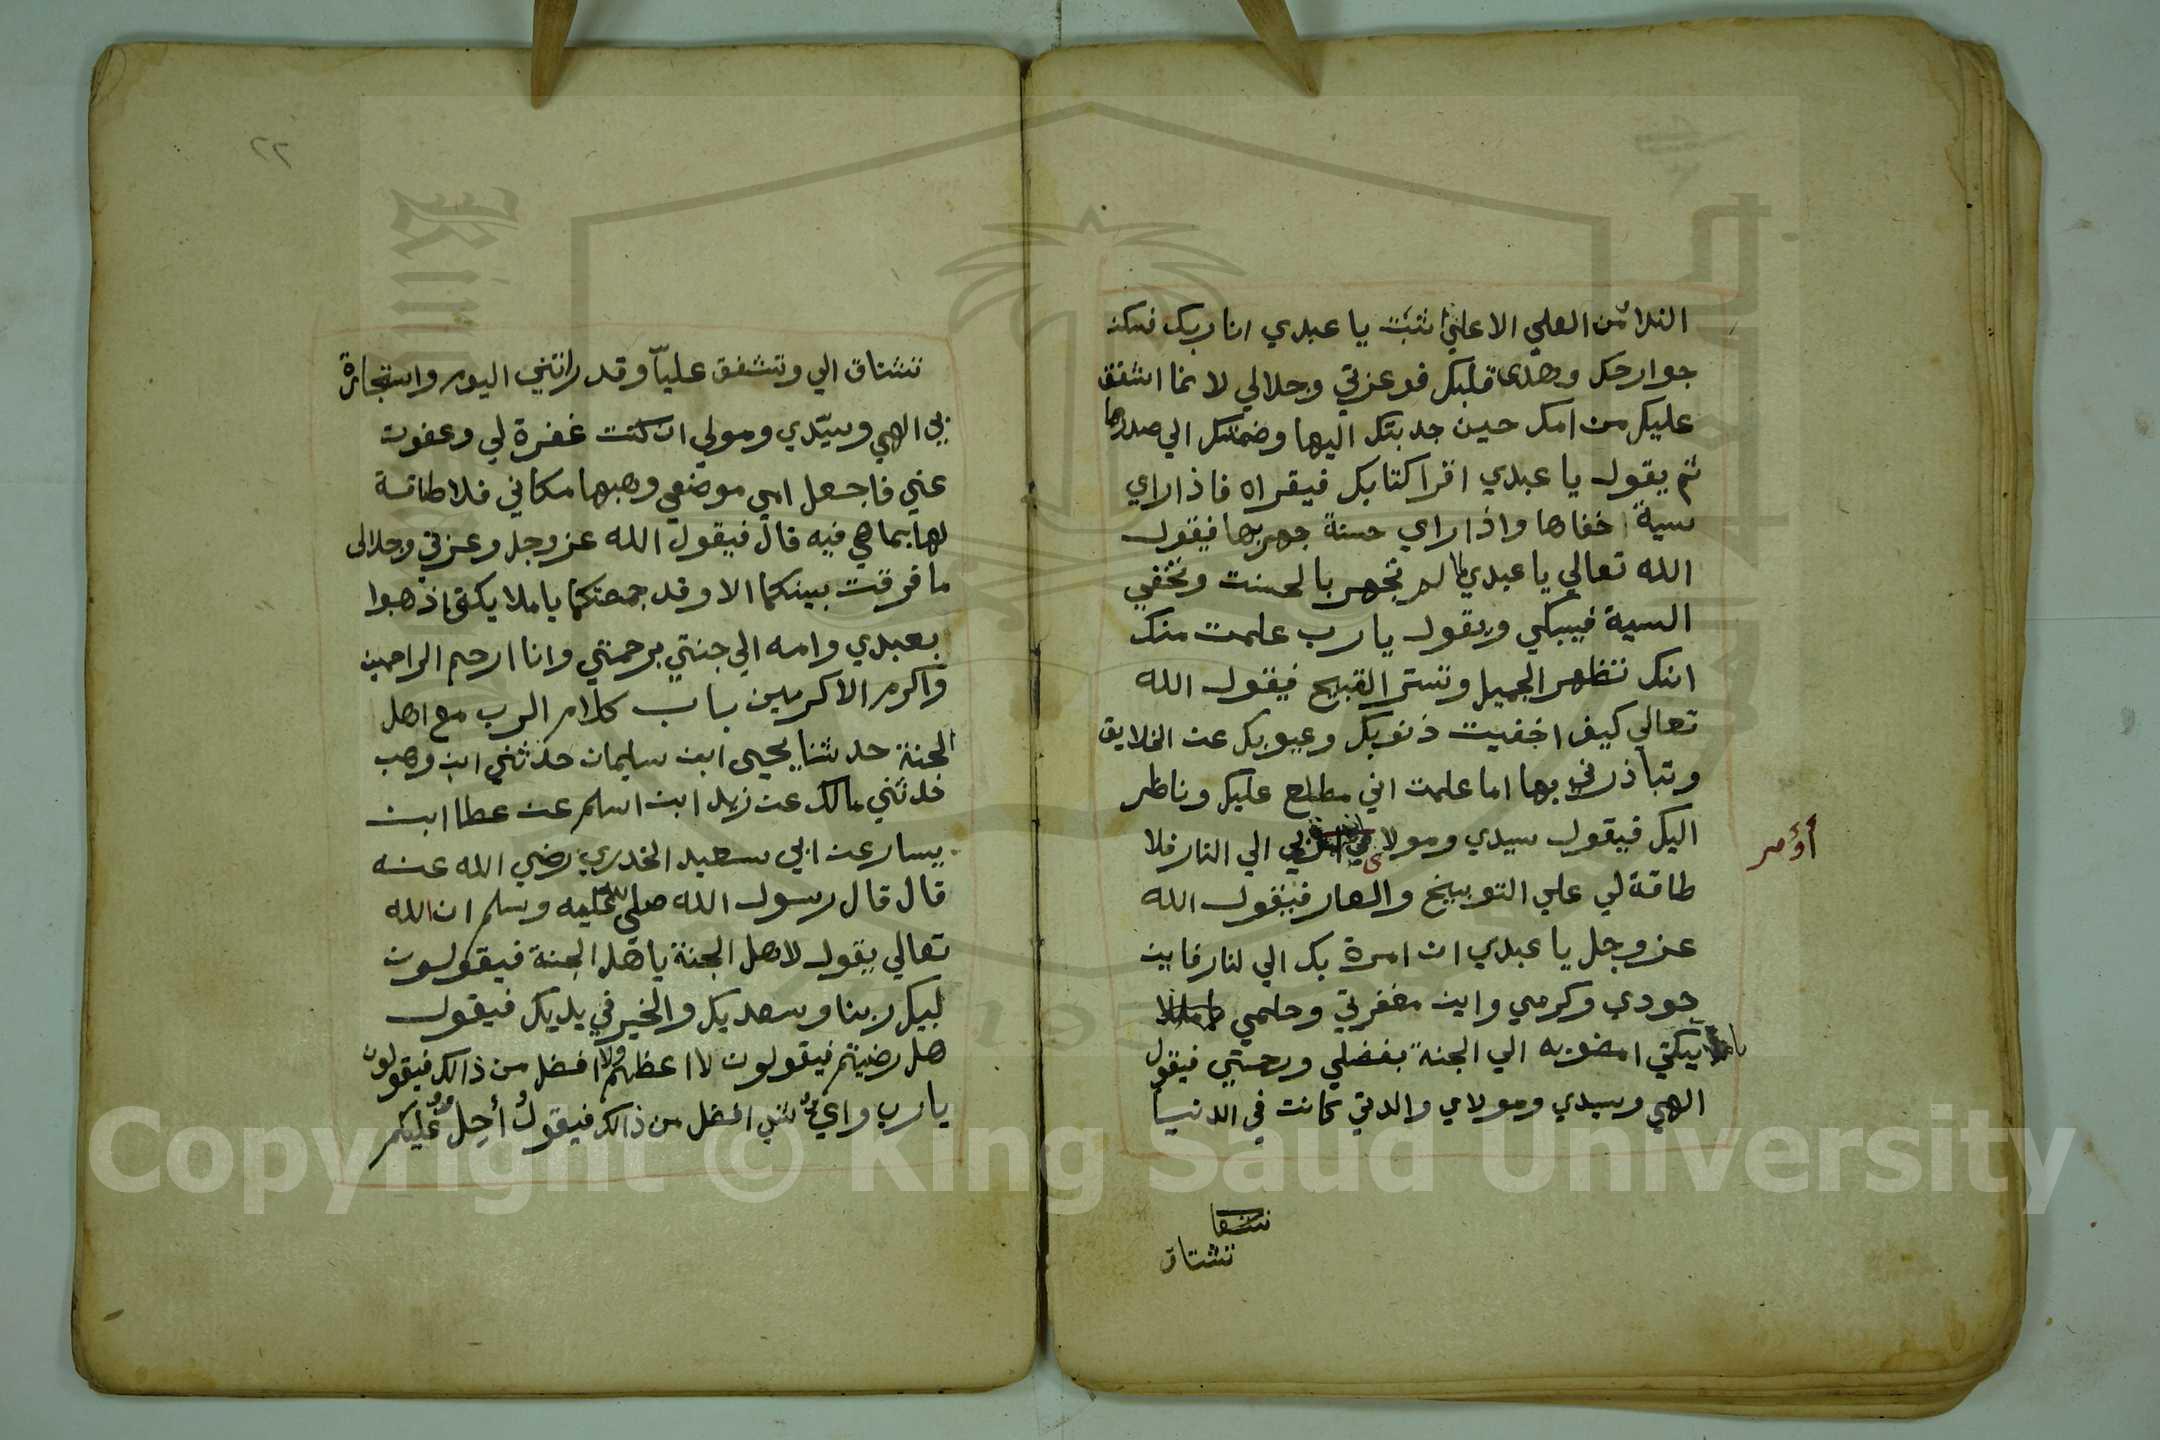 الندا من العلي الاعلي اثبت يا عبدي انا ربك فسكنه
جوارحك وهدى قلبك فوعزتي وجلالي لا نما اشفق
عليك من امك حين جدبتك اليها وضمتك الي صدرها
ثم يقول يا عبدي اقرا كتابك فيقراه فاذا راي
سية اخفاها واذا راي حسنة جهر بها فيقول
الله تعالي يا عبدي لم تجهر بالحسنت وتخفي
السية فيبكي ويقول يا رب علمت منك
انك تظهر الجميل وتستر القبيح فيقول الله
تعالي كيف اخفيت ذنوبك وعيوبك عن الخلايق
وتباذرني بها اما علمت اني مطلع عليك وناظر
اليك فيقول سيدي ومولاي بي الي النار فلا
أؤمر
طاقة لي علي التوبيخ والعار فيقول الله
عز وجل يا عبدي ان امرة بك الي لنار فاين
جودي وكرمي واين مغفرتي وحلمي
يا ملا يكتي امضو به الي الجنة بفضلي ورحمتي فيقول
الهي وسيدي ومولاي والدتي كانت في الدنيا
تشتاق
٢٢
تشتاق الي وتشفق عليا وقد راتني اليوم واستجارة
بي الهي وسيدي ومولي ان كنت غفرة لي وعفوت
عني فاجعل امي موضعي وهبها مكاني فلا طاقة
لها بما هي فيه قال فيقول الله عز وجل وعزتي وجلالى
ما فرقت بينكما الا وقد جمعتكما يا ملا يكتي اذهبوا
بعبدي وامه الي جنتي برحمتي وانا ارحم الراحمين
واكرم الاكرمين باب كلام الرب مع اهل
الجنة حدثنا يحيى ابن سليمان حدثني ابن وهب
حدثني مالك عن زيد ابن اسلم عن عطا ابن
يسار عن ابي سعيد الخدري رضي الله عنه
قال قال رسول الله صلى الله عليه وسلم ان الله
تعالي يقول لاهل الجنة يا هل الجنة فيقولون
لبيك ربنا وسعديك والخير في يديك فيقول
هل رضيتم فيقولون لا اعظهم ولا افضل من ذالك فيقولون
يا رب واي شي افضل من ذالك فيقول أحل عليكم
Copyright © King Saud University